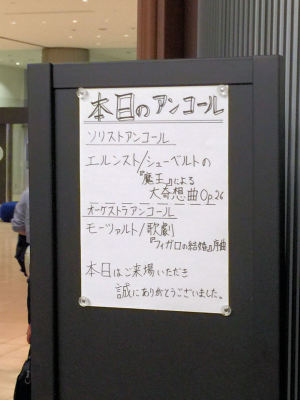 本日のアンコール
ソリストアンコール
エルンスト/シューベルトの
『魔王』による
大奇想曲Op.26
オーケストラアンコール
モーツァルト/歌劇
『フィガロの結婚』序曲
本日はご来場いただき
誠にありがとうございました。